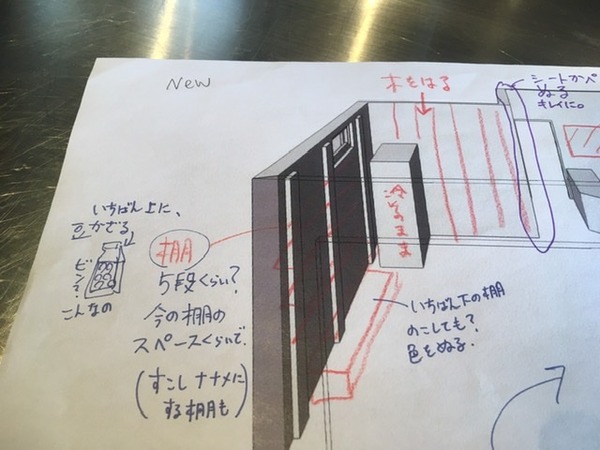 New
木をはる
シートかペ
ぬる
キレイに。
いちばん上に、
豆かざる
ビン?
こんなの
棚
5段くらい?
今の棚の
スペースくらいで.
(すこしナナメに
する棚も)
そのまま
いちばん下の棚
のこしても?
色をぬる.